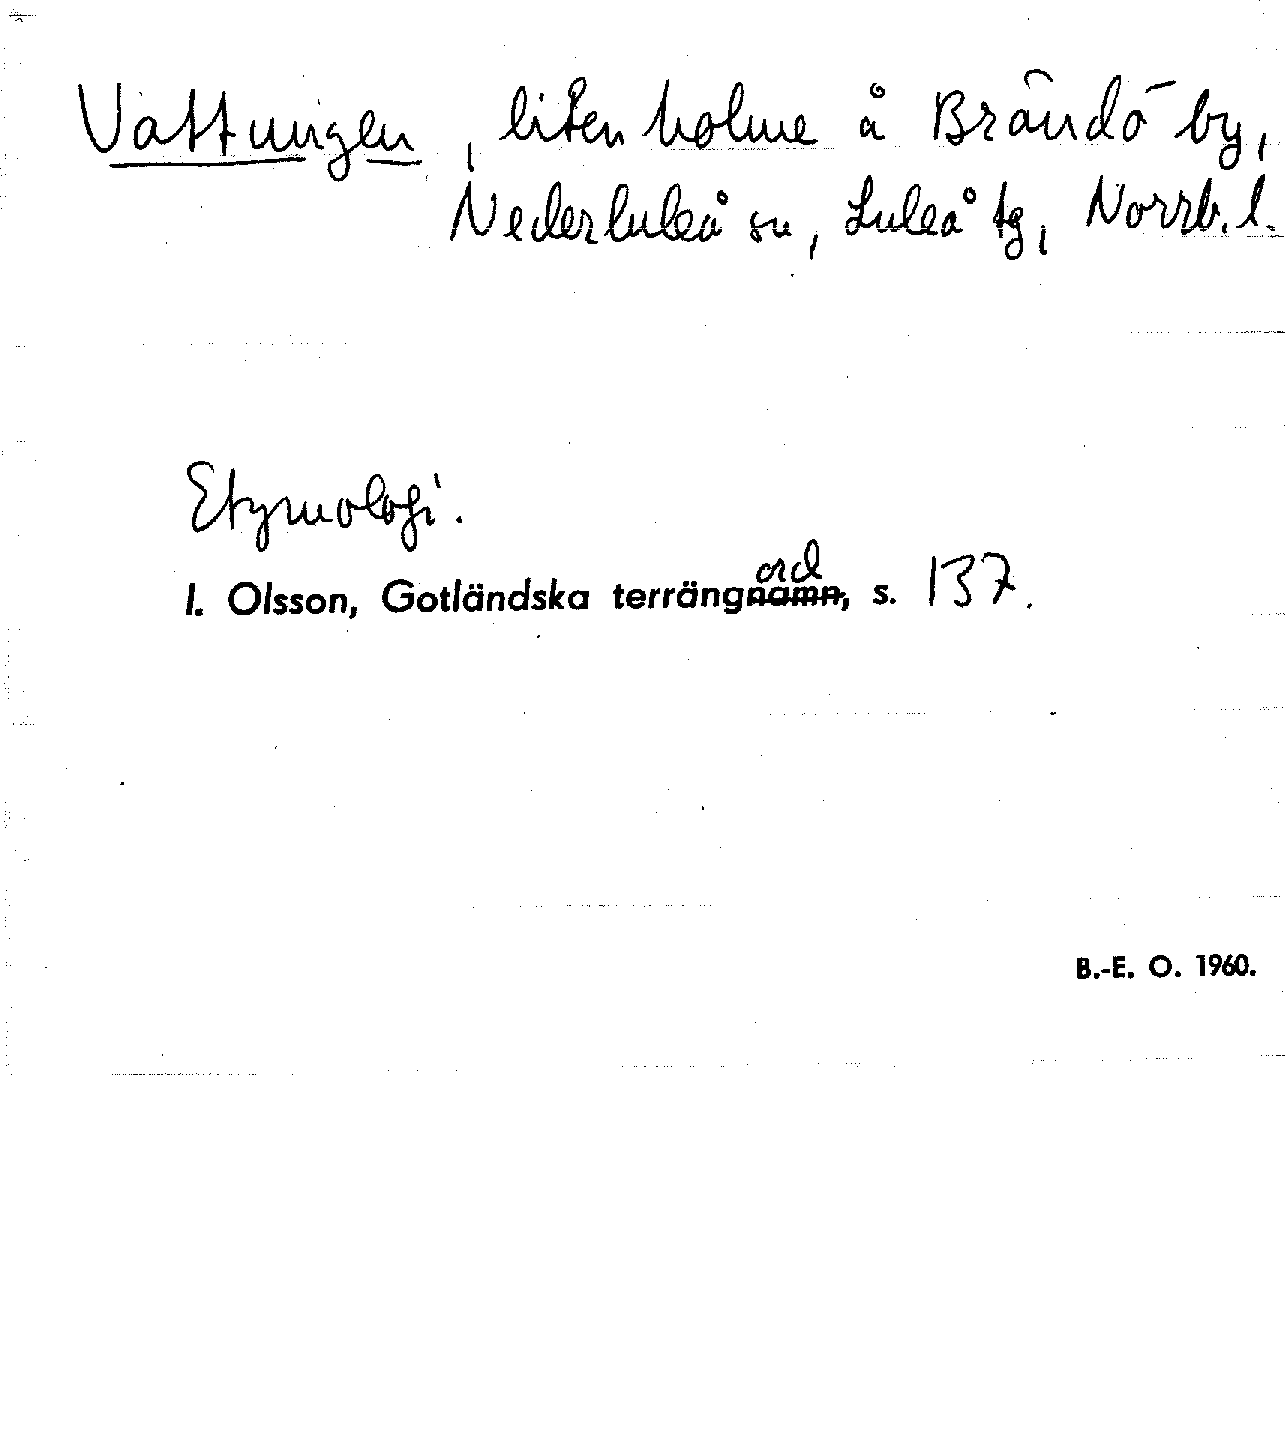 Vattungen, liten holme å Brändö by,
Nederluleå sn, Luleå tg, Norrb. l.
Etymologi.
ord
I. Olsson, Gotländska terrängnamn, s. 137.
B.-E. O. 1960.